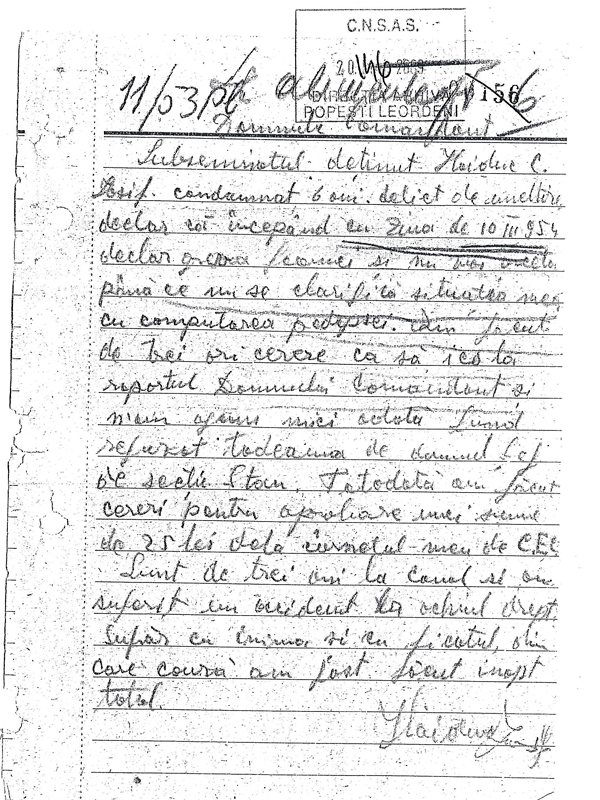 C.N.S.A.S.
POPESTI LEORDENI
156
11/53/56
Domnule Comandant
Subsemnatul deținut Haiduc C.
Iosif. condamnat 6 ani. delict de uneltire
declar că începând cu ziua de 10 III 954
declar greva foamei si nu voi înceta
până ce nu se clarifică situatia mea
cu computarea pedepsei. Am făcut
de trei ori cerere ca să ies la
raportul Domnului Comandant si
nam ajuns nici odată fiind
refuzat todeauna de domnul sef
de sectie Stan. Totodată am făcut
cereri pentru aprobare unei sume
de 25 lei dela carnetul meu de CEC
Sunt de trei ani la Canal si am
suferit un accident la ochiul drept.
Sufăr cu inima si cu ficatul, din
care cauză am fost făcut inapt
total.
Haiduc